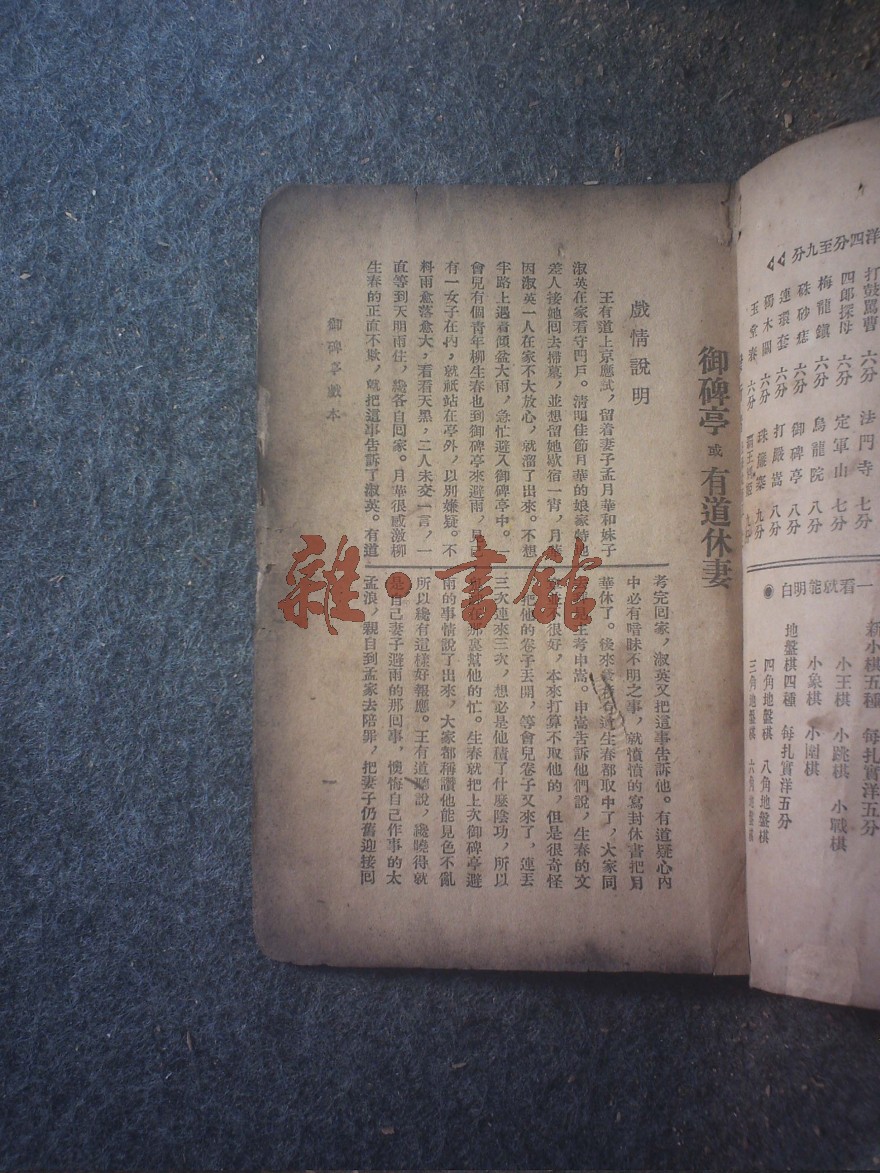 洋四分至九分
打鼓罵曹 六分
四郎探母 六分
梅龍鎮 六分
硃砂痣 六分
連環套 六分
獨木關 六分
玉堂春 六分
法門寺 七分
定軍山 七分
烏龍院 八分
御碑亭 八分
打嚴嵩 八分
珠簾寨 九分
一看就能明白
新小棋五種 每扎實洋五分
小王棋 小跳棋 小戰棋
小象棋 小圍棋
地盤棋四種 每扎實洋五分
四角地盤棋 八角地盤棋
三角地盤棋 六角地盤棋
御碑亭 或 有道休妻
戲情說明
王有道上京應試，留着妻子孟月華和妹子
淑英在家看守門戶。清明佳節月華的娘家特地
差人接她回去掃墓，並想留她歇宿一宵，月華
因淑英一人在家不大放心，就溜了出來。不想
半路上遇着傾盆大雨，急忙避入御碑亭中。一
會兒有個青年柳生春也到御碑亭來避雨，見已
有一女子在內，就祇站在亭外，以別嫌疑。不
料雨愈落愈大，看看天黑，二人未交一言，一
直等到天明雨住，纔各自回家。月華很感激柳
生春的正直不欺，就把這事告訴了淑英。有道
考完回家，淑英又把這事告訴他。有道疑心內
中必有曖昧不明之事，就憤憤的寫封休書把月
華休了。後來 生春都取中了，大家同
主考申嵩。申嵩告訴他們說，生春的文
不很好，本來打算不取他的，但是很奇怪
把他的卷子丟開，等會兒卷子又來了，連丟
三次連來三次，想必是他積了什麼陰功，所以
裏幫他的忙。生春就把上次御碑亭避
雨的事情說了出來，大家都稱讚他能見色不亂
所以纔有這樣好報應。王有道聽說，纔曉得就
是自己妻子避雨的那回事，懊悔自己作事的太
孟浪，親自到孟家去陪罪，把妻子仍舊迎接回
御碑亭戲本
一
雜·書館